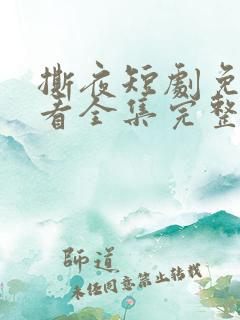 撕夜短劇免
看全集完整
師道
未经同意禁止转载